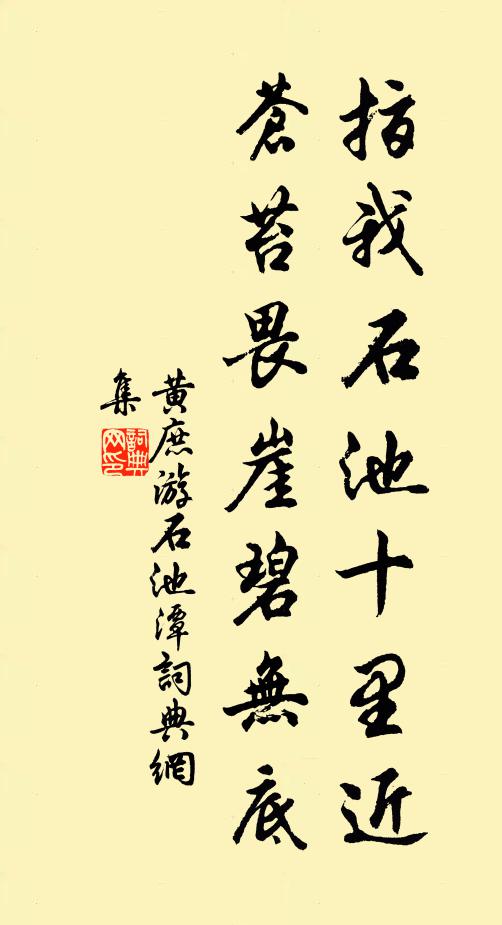 指我石池十里近
蒼苔畏崖碧無底
黃庶游石池潭詞典網
集
詞典網印